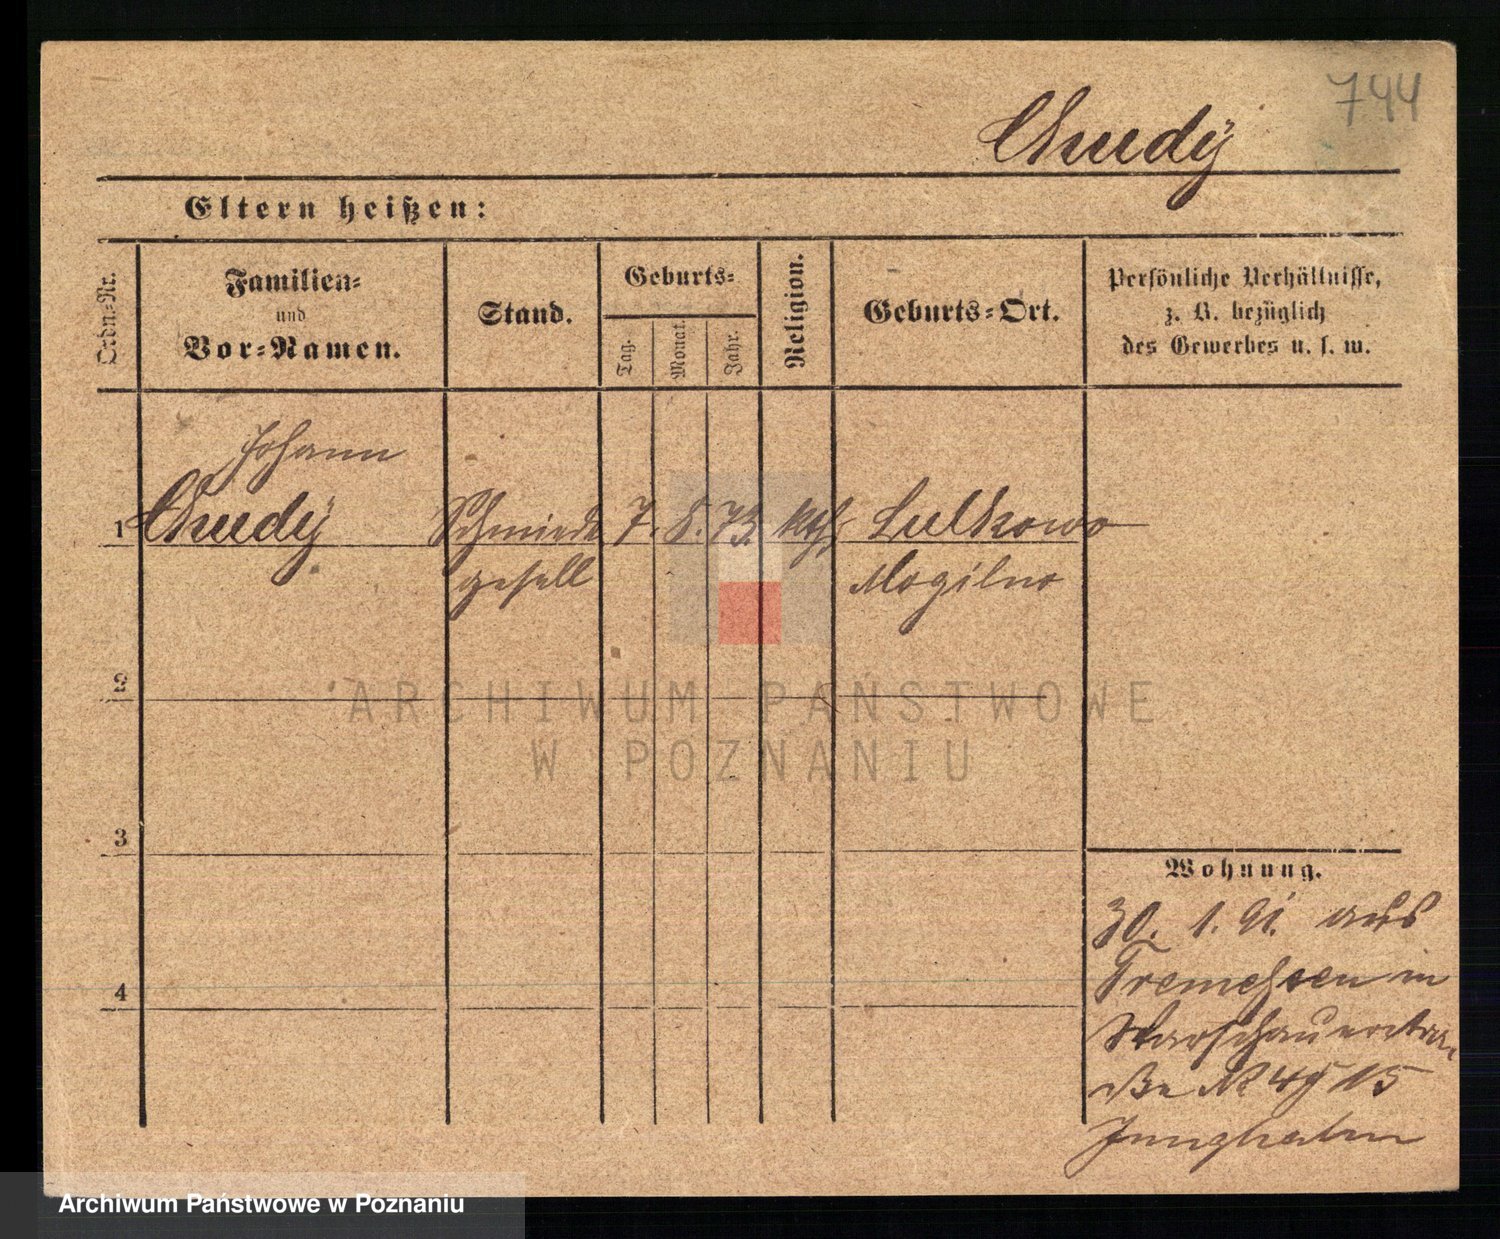 744
Chudÿ
Eltern heißen:
Ordn.-Nr.
Familien-
und
Vor-Namen.
Stand.
Geburts-
Tag.
Monat.
Jahr.
Religion.
Geburts-Ort.
Persönliche Verhältnisse,
z. B. bezüglich
des Gewerbes u. s. w.
Johann
1 Chudÿ Schmiede 7. 5. 73. kth. Lulkowo
gesell Mogilno
2
3
4
Wohnung.
30. 1. 91. aus
Tremessen in
Warschauerstra
ße №
ARCHIWUM PAŃSTWOWE
W POZNANIU
Archiwum Państwowe w Poznaniu